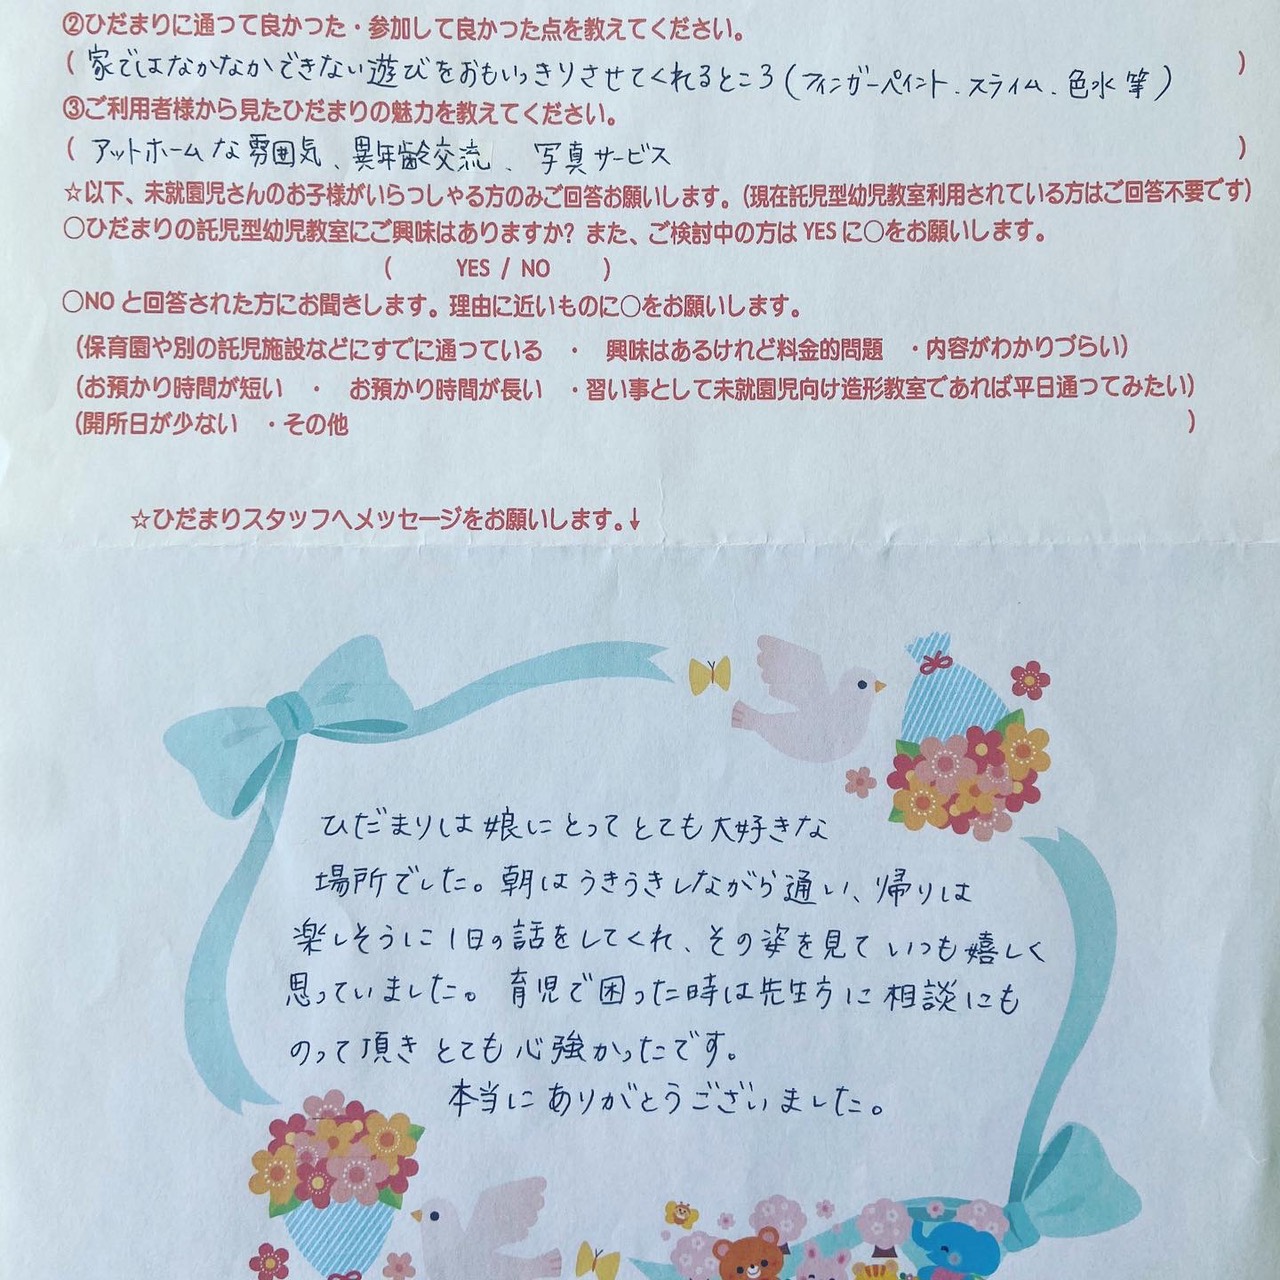 ②ひだまりに通って良かった・参加して良かった点を教えてください。
( 家ではなかなかできない遊びをおもいっきりさせてくれるところ(フィンガーペイント、スライム、色水 等) )
③ご利用者様から見たひだまりの魅力を教えてください。
( アットホームな雰囲気、異年齢交流、写真サービス )
☆以下、未就園児さんのお子様がいらっしゃる方のみご回答お願いします。(現在託児型幼児教室利用されている方はご回答不要です)
○ひだまりの託児型幼児教室にご興味はありますか? また、ご検討中の方は YES に○をお願いします。
( YES / NO )
○NO と回答された方にお聞きします。理由に近いものに○をお願いします。
(保育園や別の託児施設などにすでに通っている ・ 興味はあるけれど料金的問題 ・内容がわかりづらい)
(お預かり時間が短い ・ お預かり時間が長い ・習い事として未就園児向け造形教室であれば平日通ってみたい)
(開所日が少ない ・その他 )
☆ひだまりスタッフへメッセージをお願いします。↓
ひだまりは娘にとってとても大好きな
場所でした。朝はうきうきしながら通い、帰りは
楽しそうに1日の話をしてくれ、その姿を見ていつも嬉しく
思っていました。育児で困った時は先生方に相談にも
のって頂きとても心強かったです。
本当にありがとうございました。